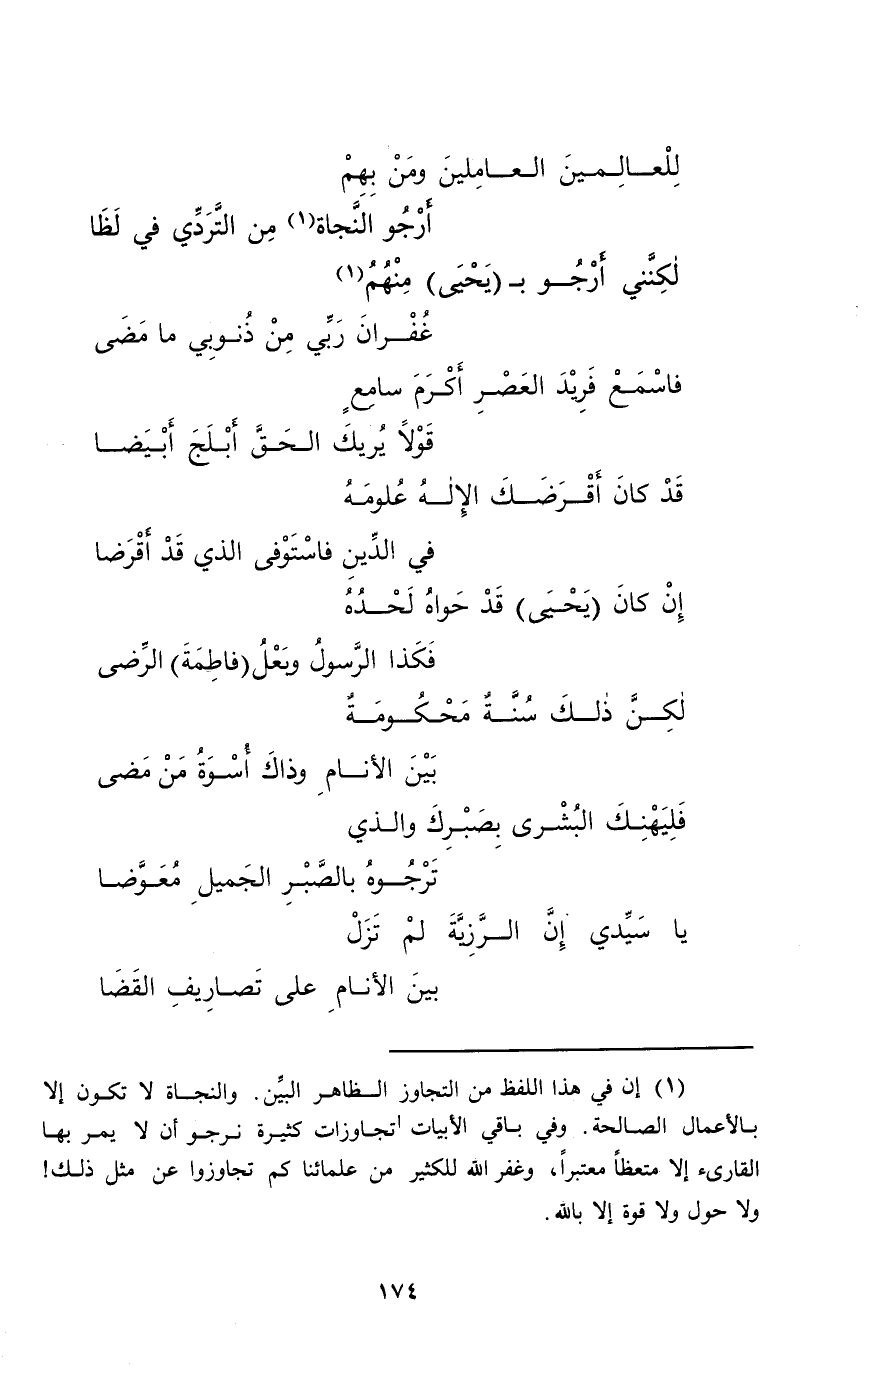 لِلْعَـالِـمـينَ الـعَـامِلينَ ومَنْ بِهِمْ
أَرْجُو النَّجاة(١) مِن التَّرَدِّي في لَظَا
لٰكِنَّني أَرْجُـو بـ (يَحْيَى) مِنْهُمُ(١)
غُفْـرانَ رَبِّي مِنْ ذُنـوبِي ما مَضَى
فاسْمَـعْ فَرِيْدَ العَصْـرِ أَكْـرَمَ سامِعٍ
قَوْلاً يُريكَ الـحَـقَّ أَبْـلَجَ أَبْـيَضـا
قَدْ كانَ أَقْـرَضَـكَ الإِلٰـهُ عُلومَـهُ
في الدِّينِ فاسْتَوْفى الذي قَدْ أَقْرَضا
إِنْ كانَ (يَحْـيَى) قَدْ حَواهُ لَحْـدُهُ
فَكَذا الرَّسولُ وبَعْلُ (فاطِمَةَ) الرِّضى
لٰكِـنَّ ذٰلـكَ سُنَّـةٌ مَحْـكُـومَـةٌ
بَيْنَ الأنـامِ وذاكَ أُسْـوَةُ مَنْ مَضى
فَلِيَهْنِـكَ البُشْرى بِصَبْـرِكَ والـذي
تَرْجُـوهُ بالصَّبْـرِ الجَميلِ مُعَـوَّضـا
يا سَيِّدي إِنَّ الـرَّزِيَّةَ لمْ تَزَلْ
بينَ الأنـامِ على تَصـارِيفِ القَضَا
(١) إن في هذا اللفظ من التجاوز الـظاهـر البيِّن. والنجـاة لا تكـون إلا
بـالأعمال الصـالحة. وفي بـاقي الأبيات تجـاوزات كثيـرة نـرجـو أن لا يمـر بهـا
القارىء إلا متعظاً معتبراً، وغفر الله للكثير من علمائنا كم تجاوزوا عن مثل ذلـك!
ولا حول ولا قوة إلا بالله.
١٧٤